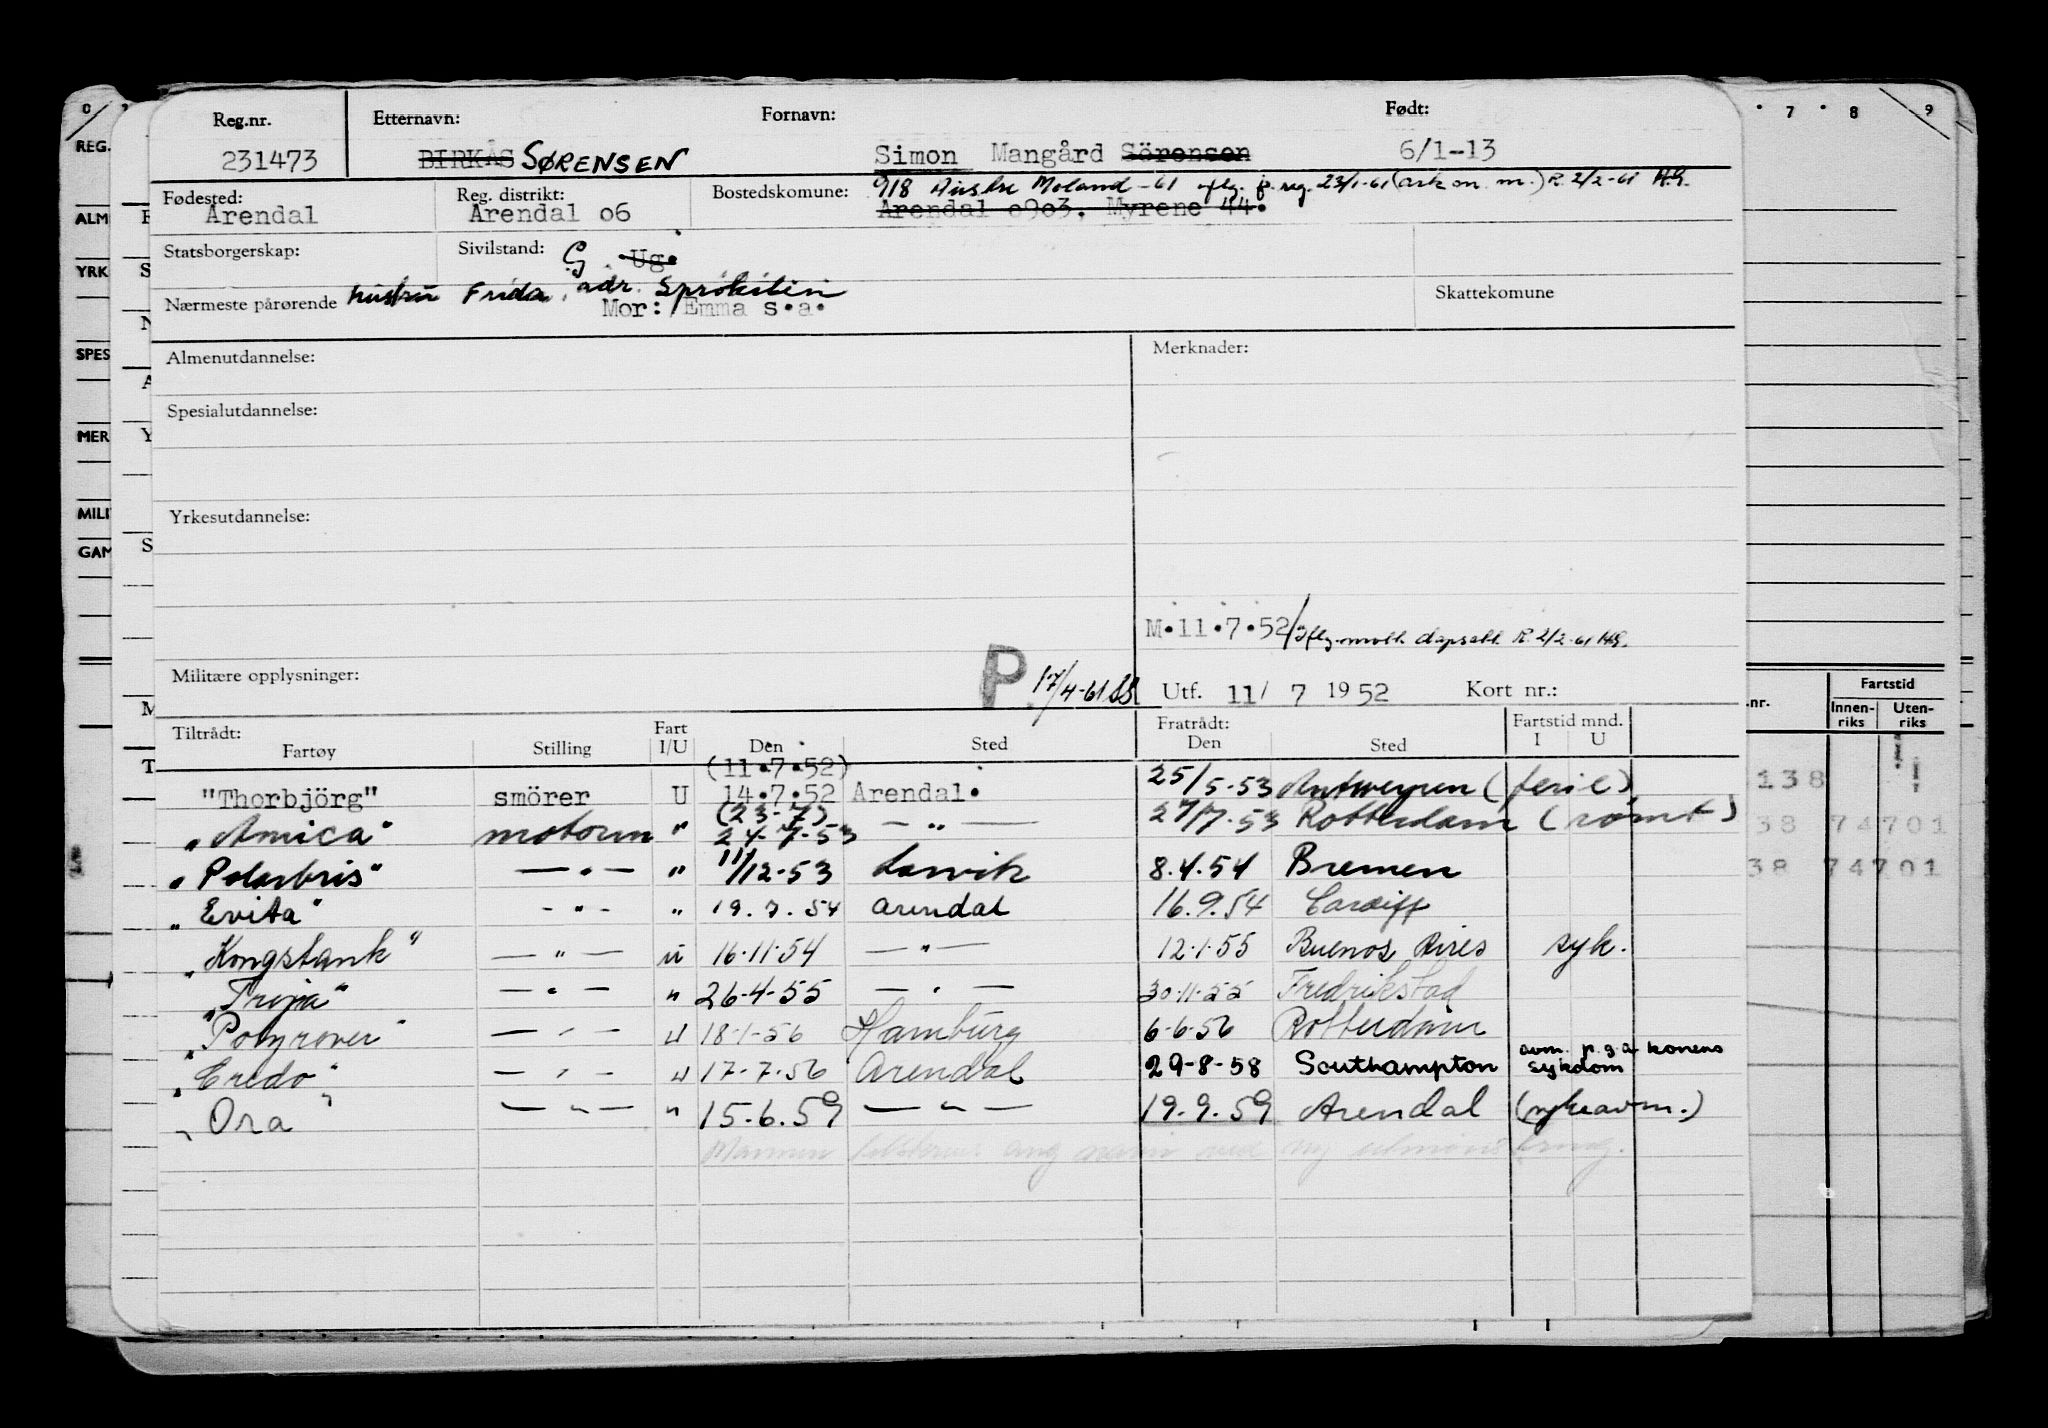 Reg.nr. Etternavn: Fornavn: Født:
231473 BIRKÅS SØRENSEN Simon Mangård Sörensen 6/1-13
Fødested: Reg. distrikt: Bostedskomune: 918 Austre Moland -61 p. reg. 23/1-61 R. 2/2-61 HG.
Arendal Arendal 06 Arendal 0903. Myrene 44.
Statsborgerskap: Sivilstand: G Ug.
Nærmeste pårørende hustru Frida, adr. Skattekomune
Mor: Emma s.a.
Almenutdannelse: Merknader:
Spesialutdannelse:
Yrkesutdannelse:
M.11.7.52 R. 2/2-61 HG.
Militære opplysninger: P 17/4-61 Utf. 11/ 7 1952 Kort nr.:
Tiltrådt: Fratrådt: Fartstid mnd.
Fartøy Stilling Fart I/U Den Sted Den Sted I U
(11.7.52)
"Thorbjörg" smörer U 14.7.52 Arendal. 25/5-53 Antwerpen (ferie)
(23-7)
"Amica" motorm " 24-7-53 — " — 27/7-53 Rotterdam (rømt)
"Polarbris" — " — " 11/12-53 Larvik 8.4.54 Bremen
"Evita" - " - " 19.7.54 Arendal 16.9.54 Cardiff
"Kongstank" — " — u 16.11.54 — " — 12.1.55 Buenos Aires syk.
"Troja" — " — " 26-4-55 — " — 30.11.55 Fredrikstad
"Polyrover" — " — U 18-1-56 Hamburg 6-6-56 Rotterdam
"Credo" — " — U 17-7-56 Arendal 29-8-58 Southampton avm. p.g.a konens sykdom
"Ora" — " — " 15.6.59 — " — 19.9.59 Arendal (sykeavm.)
0 7 8 9
REG.
ALM
YRK
SPES
MER
MILI
GAM
.nr. Fartstid
Innen-riks Uten-riks
138
38 74701
38 74701